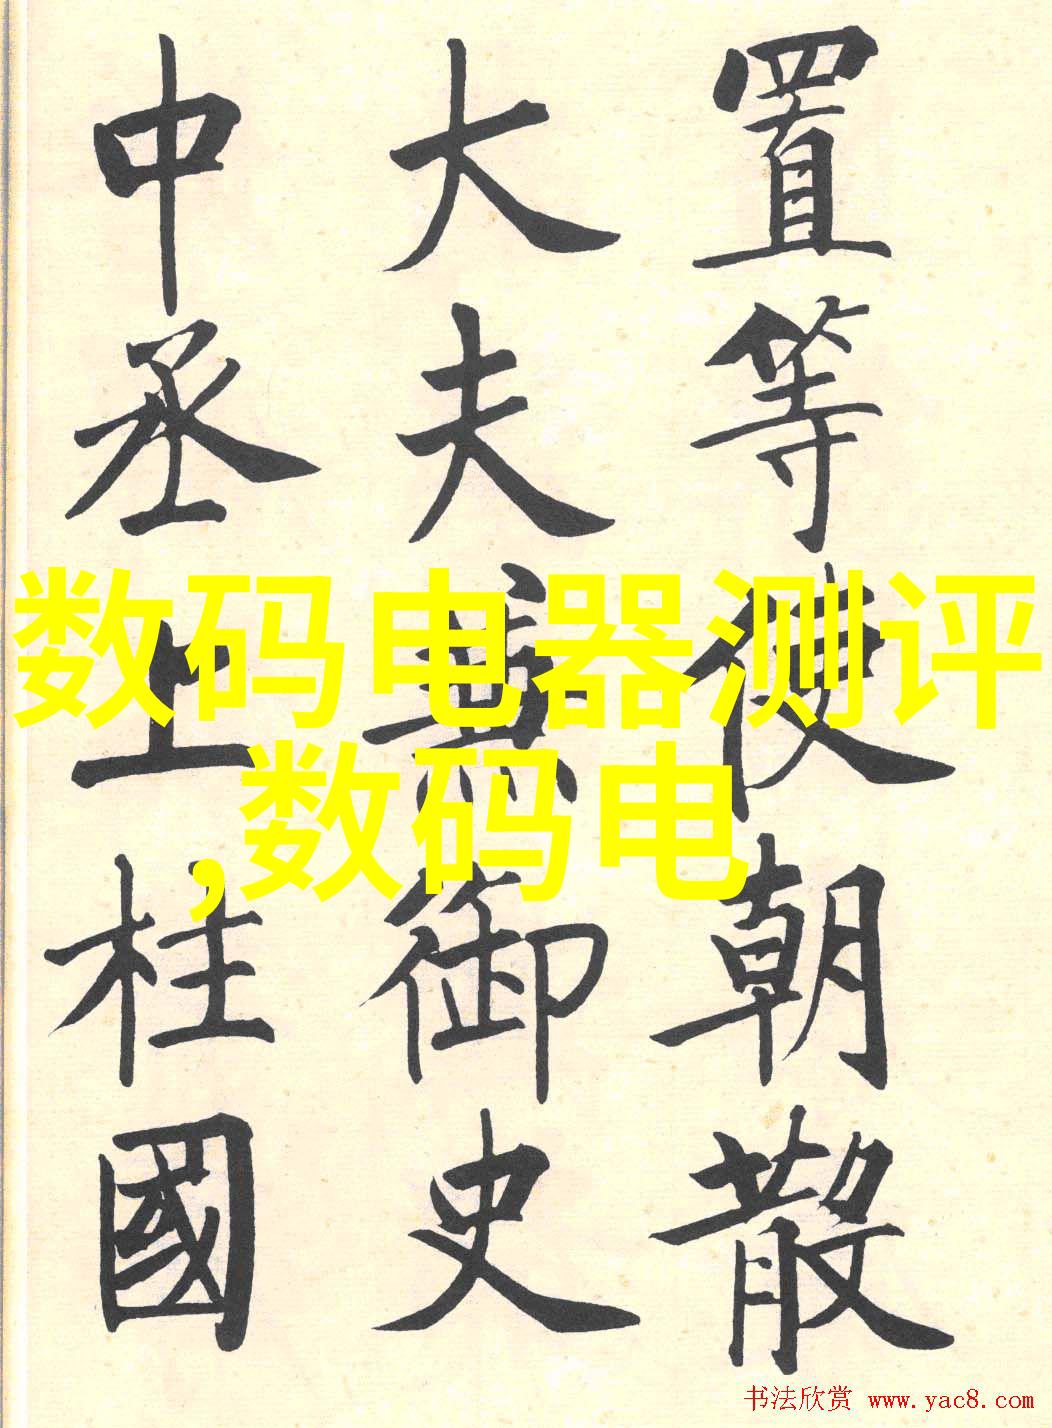 置等使朝散
大夫兼御史
中丞上柱國
数码电器测评
,数码电
书法欣赏 www.yac8.com